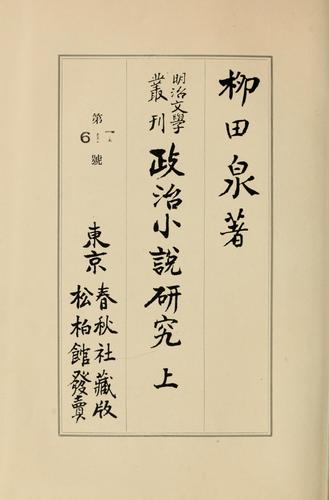 柳田泉著
明治文學
叢刊
政治小說研究 上
第
6
號
東京
春秋社藏版
松柏館發賣